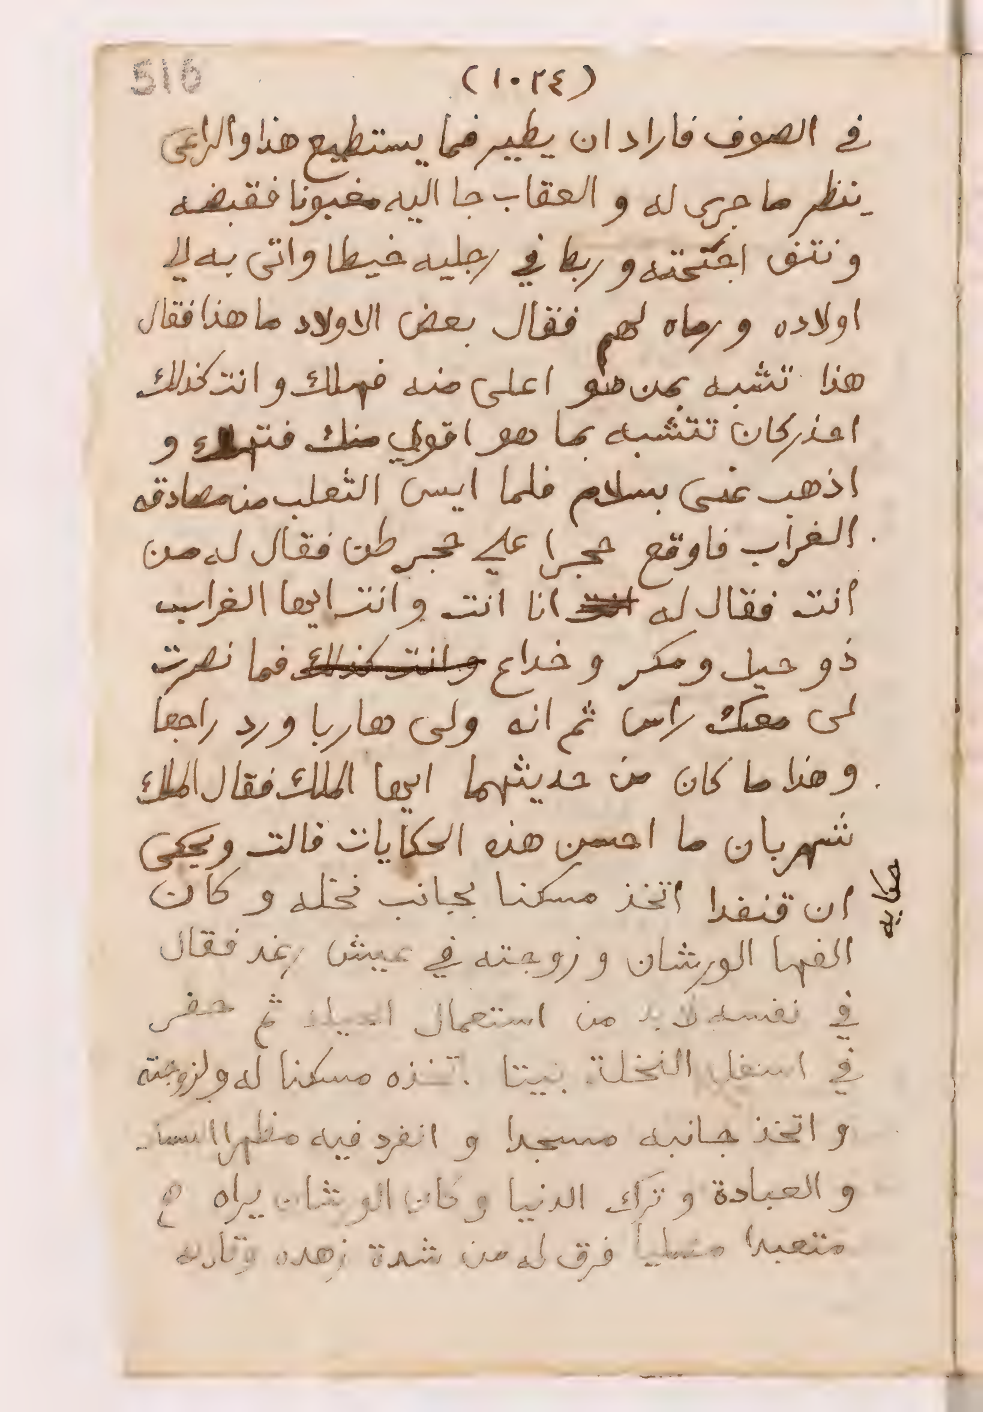 516
(١٠٢٤)
في الصوف فاراد ان يطير فما يستطيع هذا والراعى
ينظر ما جرى له و العقاب جا اليه مغبونا فقبضه
و نتف اجنحته و ربط في رجليه خيطا واتى به لي
اولاده و رماه لهم فقال بعض الاولاد ما هذا فقال
هذا تشبه بمن هو اعلى منه فهلك و انت كذلك
احذر كان تتشبه بما هو اقوي منك فتهلك و
اذهب عنى بسلام فلما ايس الثعلب من مصادقه
الغراب فاوقع حجرا علي حجر طن فقال له من
أنت فقال له انت انا انت و انت ايها الغراب
ذو حيل و مكر و خداع و انت كذلك فما نصرت
لى معك راس ثم انه ولى هاربا ورد راجعا
و هذا ما كان من حديثهما ايها الملك فقال الملك
شهربان ما احسن هذه الحكايات قالت ويحكى
حكايه
ان قنفدا اتخذ مسكنا بجانب نخله و كان
الفها الورشان و زوجته في عيش رغد فقال
في نفسه لا بد من استعمال الحيله ثم حفر
في اسفل النخلة بيتا اتخذه مسكنا له ولزوجته
و اتخذ جانبه مسجدا و انفرد فيه مظهرا
و العبادة و ترك الدنيا و كان الورشان يراه
متعبدا مصليا فرق له من شدة زهده وقال له